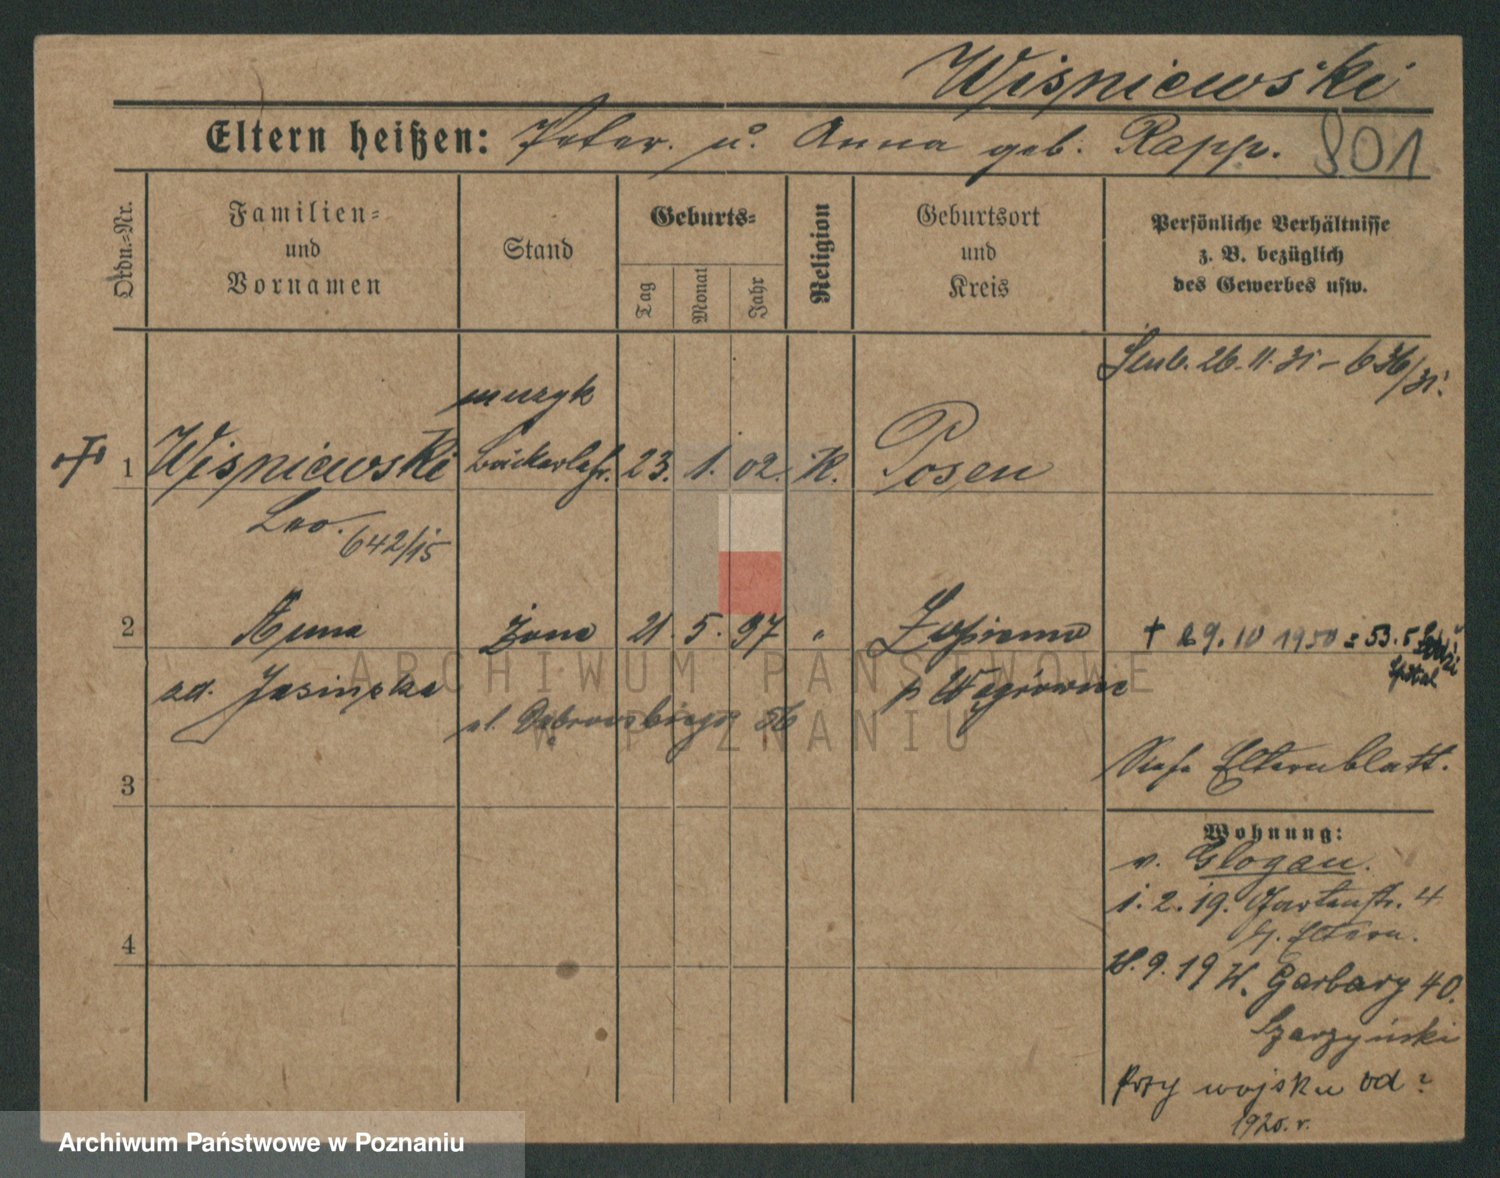 Wiśniewski
Eltern heißen: Peter. u. Anna geb. Rapp. 801
Ordn.=Nr.
Familien=
und
Vornamen
Stand
Geburts=
Tag
Monat
Jahr
Religion
Geburtsort
und
Kreis
Persönliche Verhältnisse
z. B. bezüglich
des Gewerbes usw.
26.11.31 - 636/31.
muzyk
1 Wiśniewski Bäckerlehr. 23. 1. 02. K. Posen
Leo. 642/15
2 Anna żona 21. 5. 97 " + 29.10 1950
zd. Jasińska p Wągrowiec
ul. Dąbrowskiego 56
Siehe Elternblatt.
3
Wohnung:
v. Glogau.
1.2.19. Gartenstr. 4
b. Eltern.
4
9.19 W. Garbary 40.
Szarzyński
przy wojsku od ?
1920. r.
ARCHIWUM PAŃSTWOWE
W POZNANIU
Archiwum Państwowe w Poznaniu